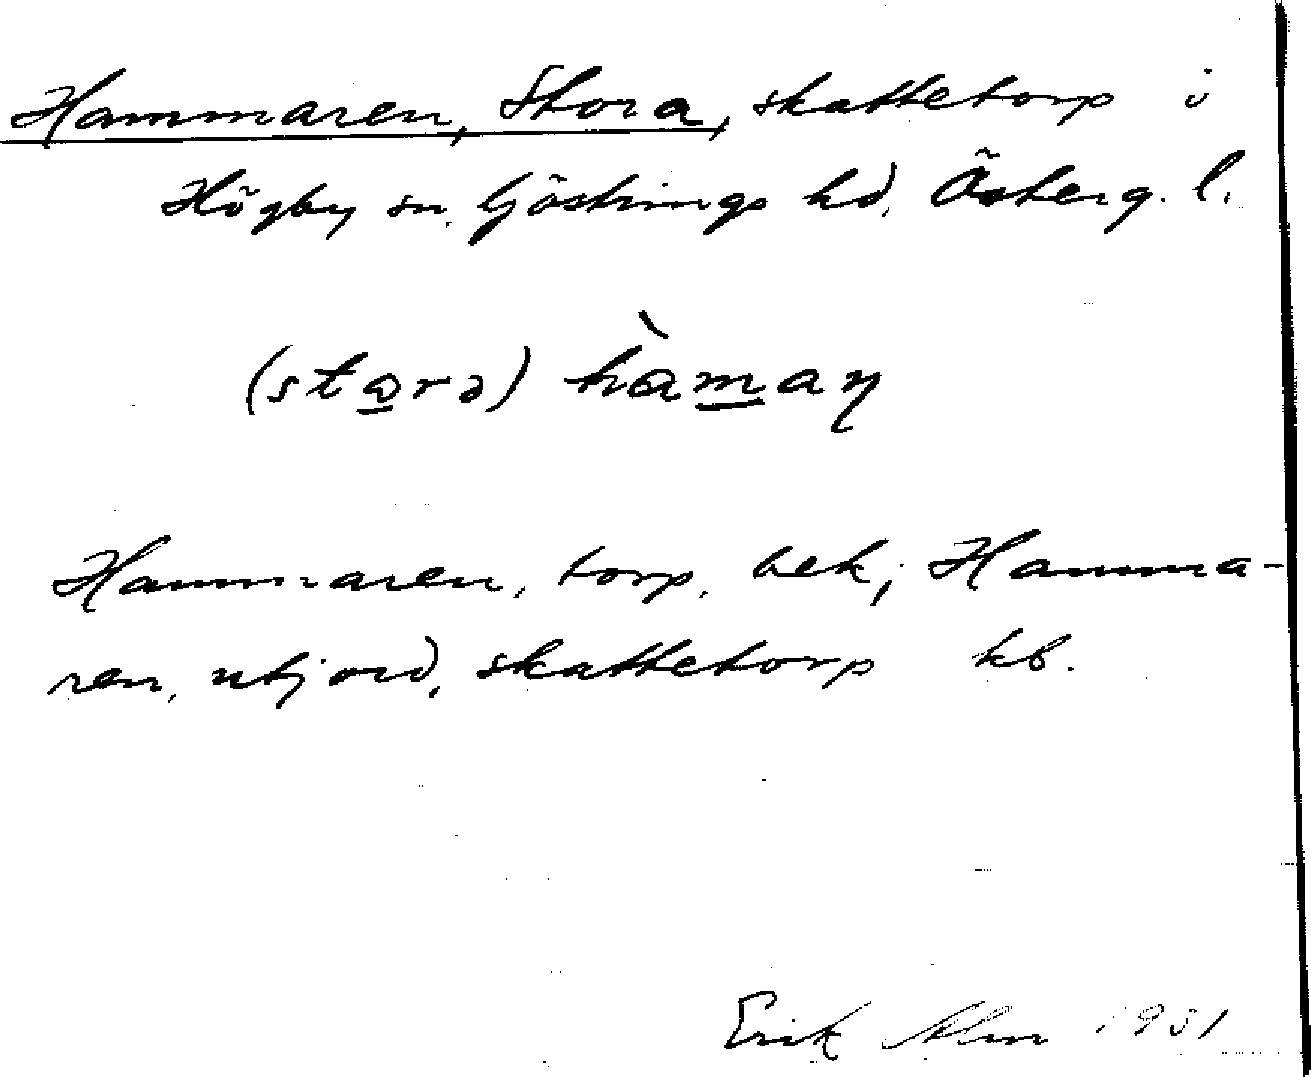 Hammaren, Stora, skattetorp i
Högby sn. Göstrings hd, Österg. l.
(sto̲rə) hàm̲aŋ
Hammaren, torp, bek; Hamma-
ren, utjord, skattetorp kb.
Erik Alm 1931